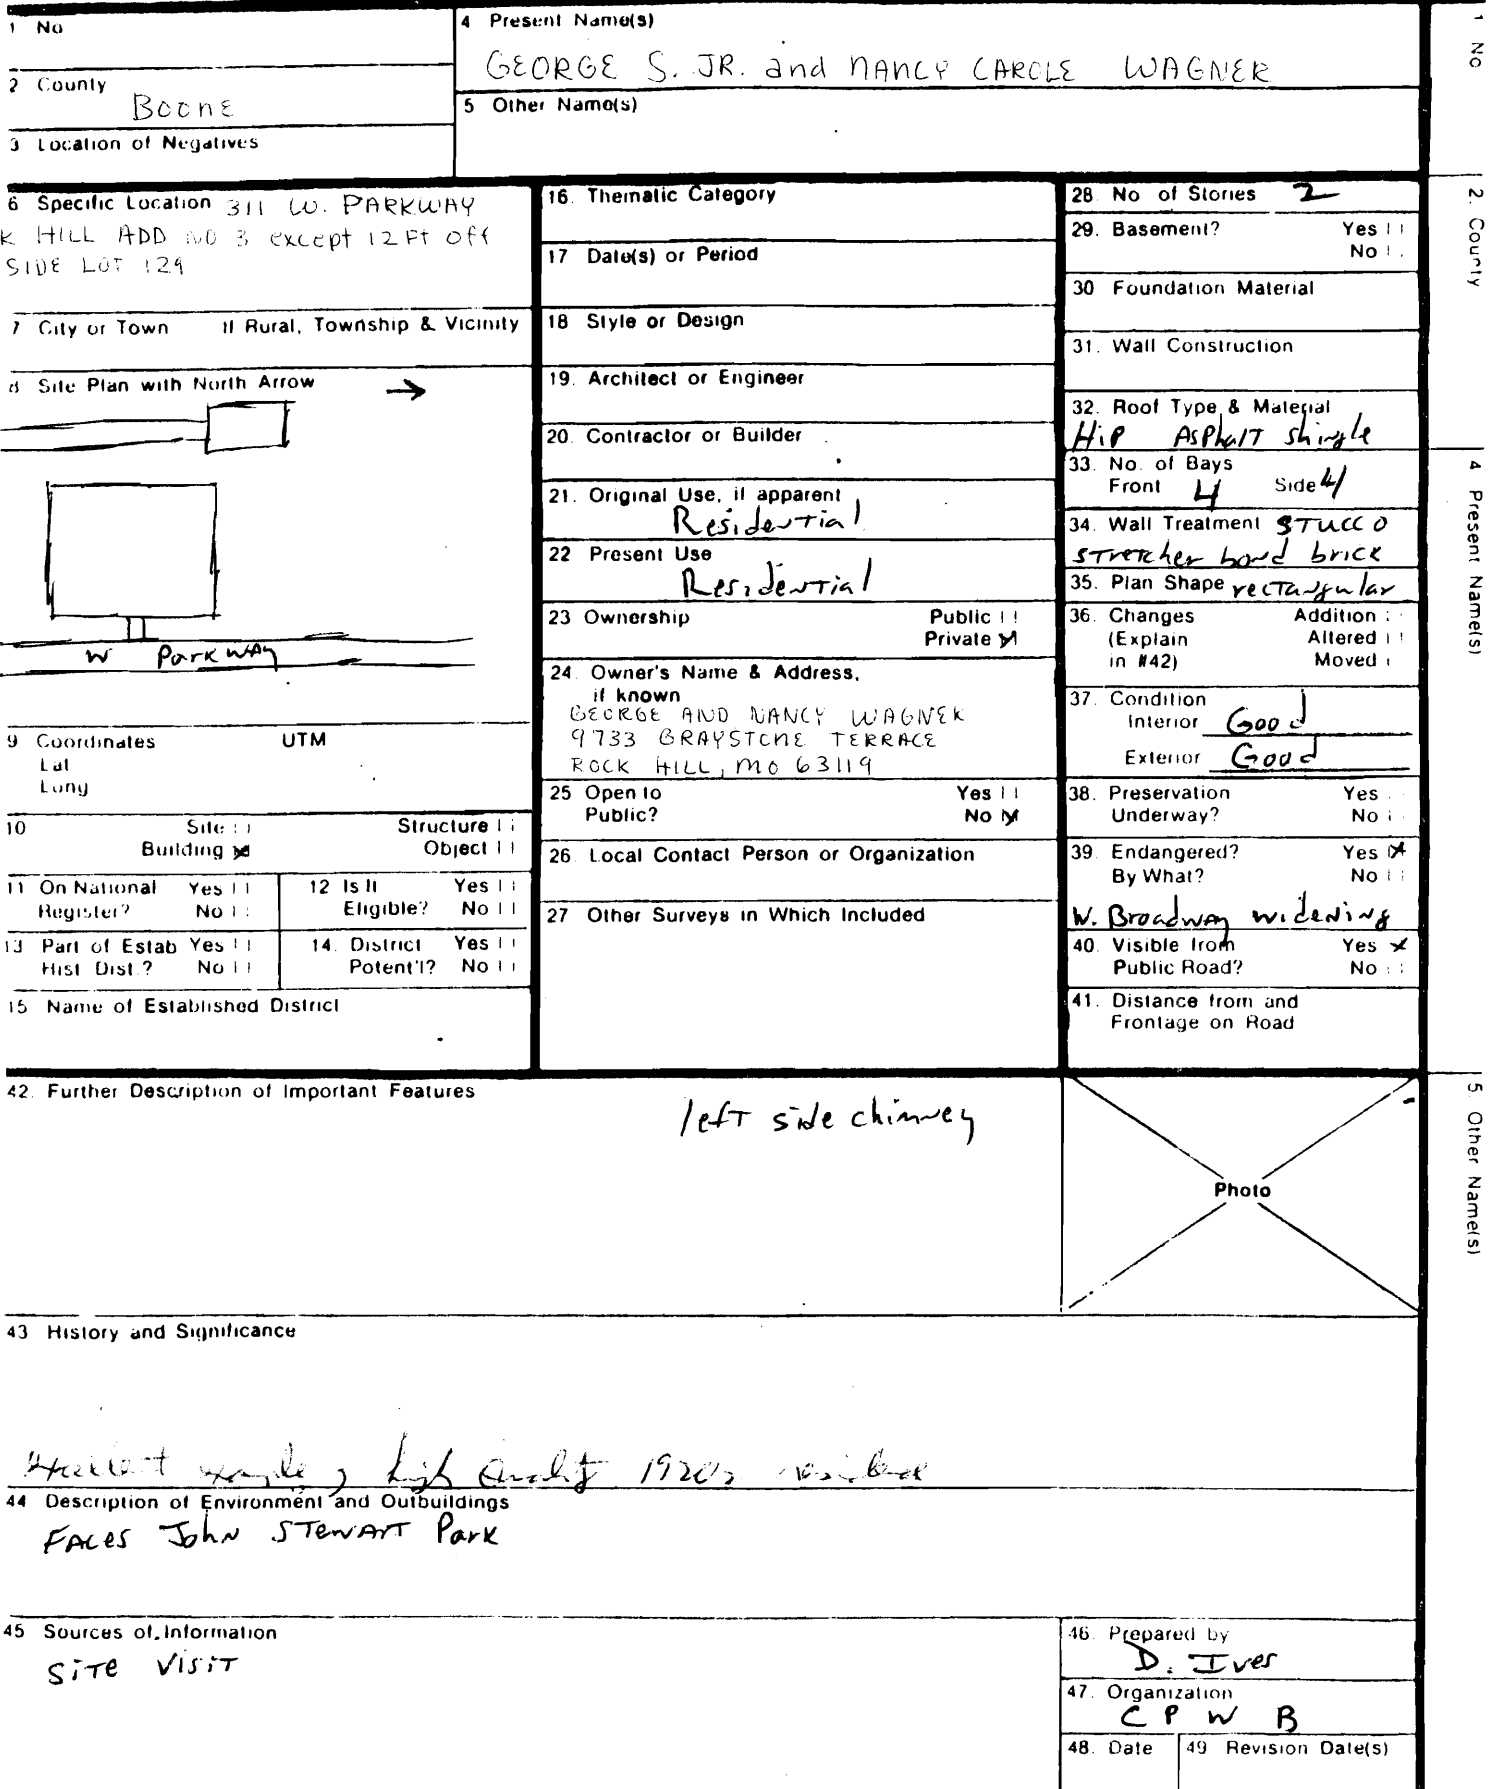 1 No
4 Present Name(s)
GEORGE S. JR. and NANCY CAROLE WAGNER
2 County
BOONE
5 Other Name(s)
3 Location of Negatives
6 Specific Location 311 W. PARKWAY
K HILL ADD NO 3 except 12 Ft off
SIDE LOT 129
7 City or Town If Rural, Township & Vicinity
8 Site Plan with North Arrow
W Parkway
9 Coordinates UTM
Lat
Long
10 Site Structure
Building Object
11 On National Register? Yes No
12 Is It Eligible? Yes No
13 Part of Estab Hist Dist.? Yes No
14. District Potent'l? Yes No
15 Name of Established District
16. Thematic Category
17 Date(s) or Period
18 Style or Design
19. Architect or Engineer
20. Contractor or Builder
21. Original Use, if apparent
Residential
22 Present Use
Residential
23 Ownership Public
Private
24. Owner's Name & Address,
if known
GEORGE AND NANCY WAGNER
9733 GRAYSTONE TERRACE
ROCK HILL, MO 63119
25 Open to Yes
Public? No
26. Local Contact Person or Organization
27 Other Surveys in Which Included
28. No of Stories 2
29. Basement? Yes
No
30 Foundation Material
31. Wall Construction
32. Roof Type & Material
Hip Asphalt shingle
33. No. of Bays
Front 4 Side 4
34. Wall Treatment STUCCO
stretcher bond brick
35. Plan Shape rectangular
36. Changes Addition
(Explain Altered
in #42) Moved
37. Condition
Interior Good
Exterior Good
38. Preservation Yes
Underway? No
39. Endangered? Yes
By What? No
W. Broadway widening
40. Visible from Yes
Public Road? No
41. Distance from and
Frontage on Road
42. Further Description of Important Features
left side chimney
Photo
43 History and Significance
high quality 1920s residence
44 Description of Environment and Outbuildings
Faces John Stewart Park
45 Sources of Information
Site Visit
46. Prepared by
D. Ives
47. Organization
CPWB
48. Date
49 Revision Date(s)
1 No
2. County
4 Present Name(s)
5 Other Name(s)